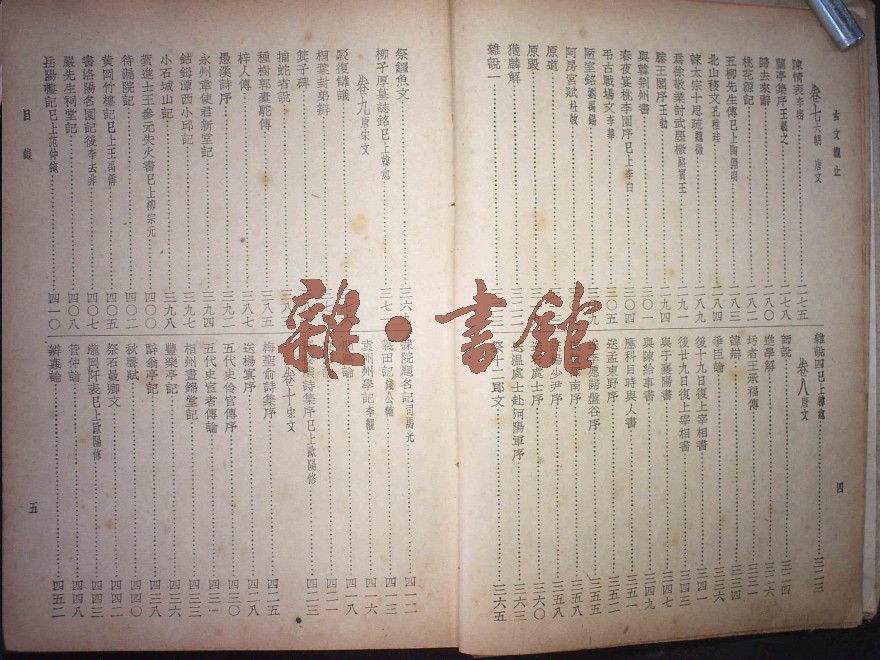 古文觀止
四
卷七 六朝 唐文
陳情表 李密 二七五
蘭亭集序 王羲之 二七八
歸去來辭 二八〇
桃花源記
五柳先生傳 已上陶淵明 二八三
北山移文 孔稚珪
諫太宗十思疏 魏徵 二八九
爲徐敬業討武曌檄 駱賓王 二九一
滕王閣序 王勃
與韓荆州書 三〇一
春夜宴桃李園序 已上李白 三〇四
弔古戰場文 李華 三〇五
陋室銘 劉禹錫
阿房宮賦 杜牧
原道
原毀
獲麟解
雜說一
雜說四 已上韓愈 三二三
卷八 唐文
師說 三二四
進學解 三二六
圬者王承福傳 三三一
諱辯 三三四
爭臣論 三三六
後十九日復上宰相書 三四一
後廿九日復上宰相書 三四三
與于襄陽書 三四七
與陳給事書 三四九
應科目時與人書 三五一
送孟東野序
送李愿歸盤谷序 三五五
南序 三五八
少尹序 三五八
處士序 三六〇
送溫處士赴河陽軍序 三六三
祭十二郎文 三六五
祭鱷魚文
柳子厚墓誌銘 已上韓愈
卷九 唐宋文
駁復讎議
桐葉封弟辨
箕子碑
捕蛇者說
種樹郭橐駝傳 三八五
梓人傳 三八七
愚溪詩序 三九二
永州韋使君新堂記 三九四
鈷鉧潭西小邱記 三九七
小石城山記 三九八
賀進士王參元失火書 已上柳宗元 四〇〇
待漏院記 四〇二
黃岡竹樓記 已上王禹偁 四〇五
書洛陽名園記後 李去非 四〇七
嚴先生祠堂記 四〇八
岳陽樓記 已上范仲淹 四一〇
諫院題名記 司馬光 四一二
義田記 錢公輔 四一三
袁州州學記 李覯 四一六
四一八
四二一
詩集序 已上歐陽修 四二三
卷十 宋文
梅聖俞詩集序 四二五
送楊寘序 四二八
五代史伶官傳序 四三〇
五代史宦者傳論 四三一
相州晝錦堂記 四三三
豐樂亭記 四三六
醉翁亭記 四三八
秋聲賦 四四〇
祭石曼卿文 四四二
瀧岡阡表 已上歐陽修 四四三
管仲論 四四八
辨姦論 四五二
目錄
五
雜·書館